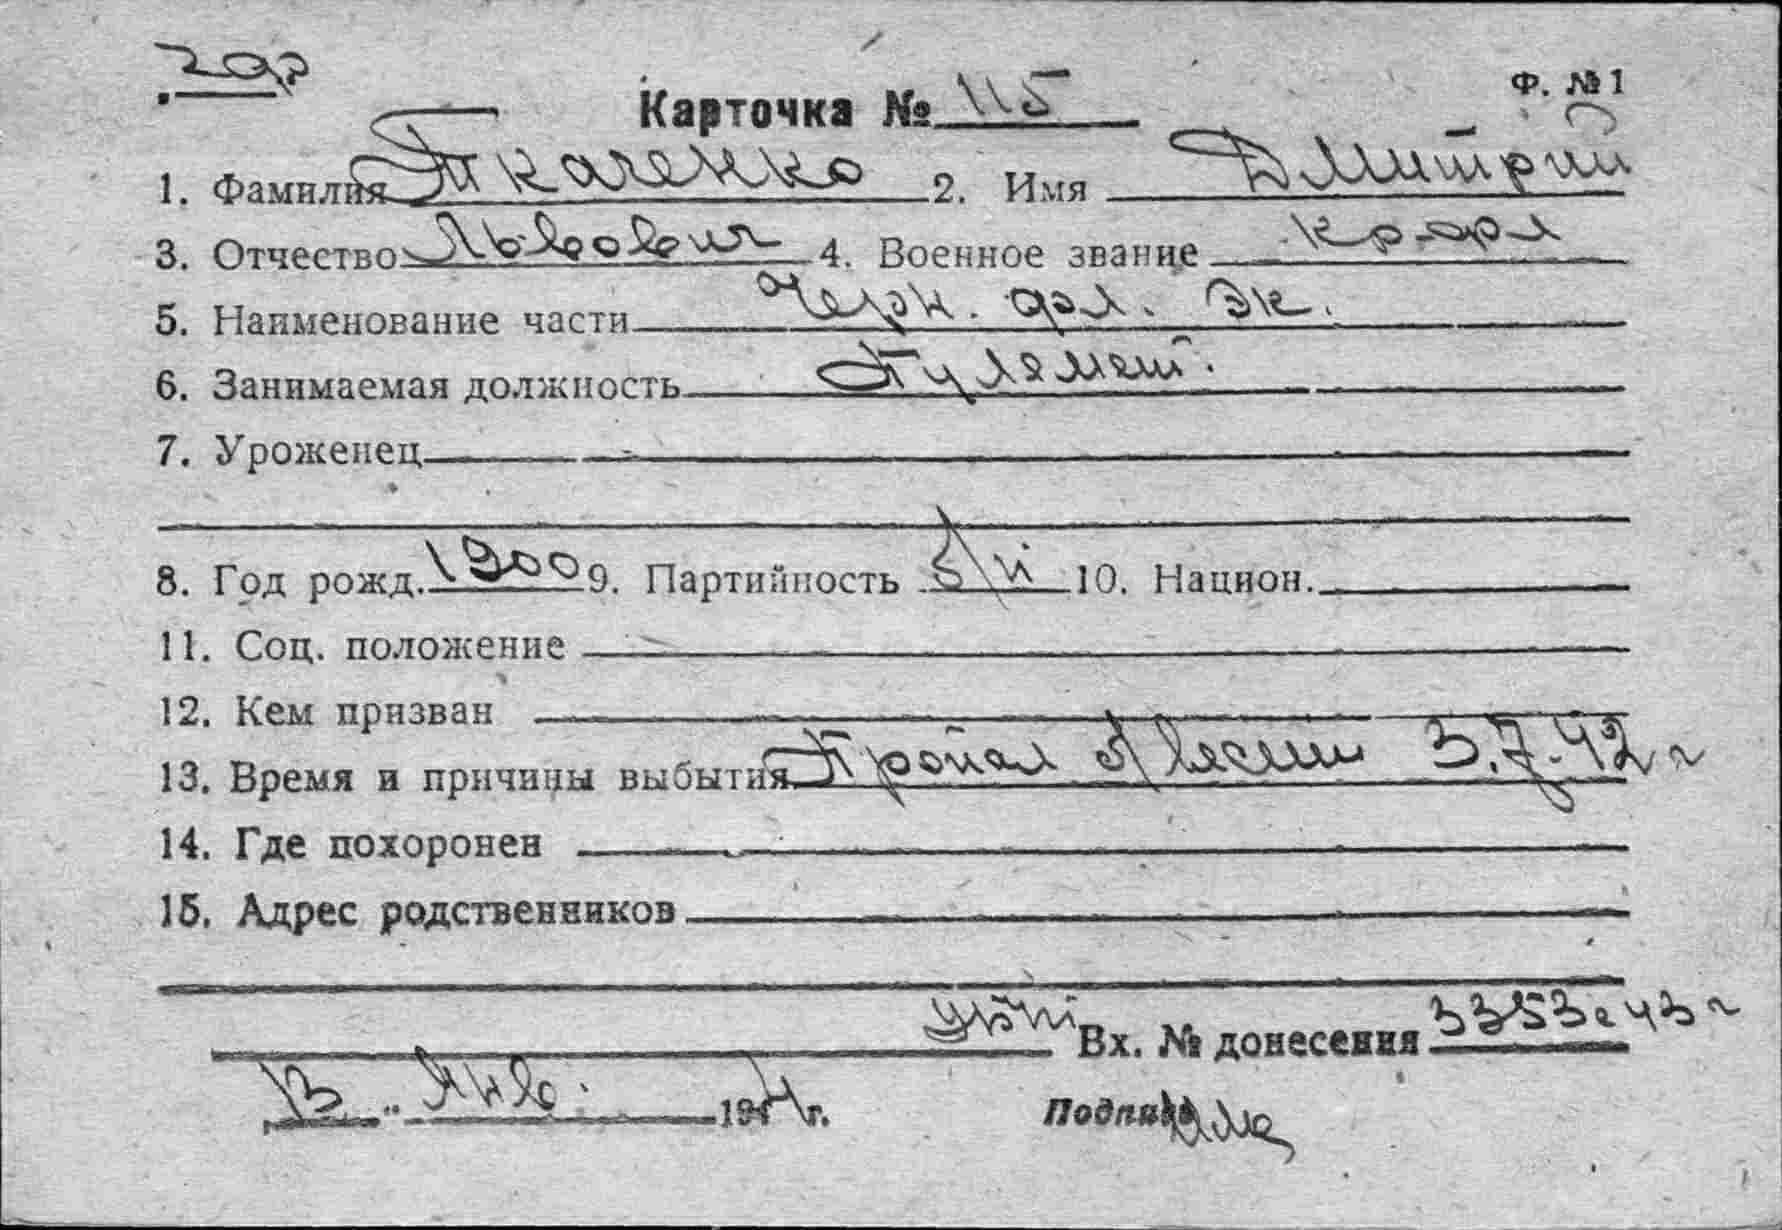 Ф. № 1
Карточка № 115
1. Фамилия Ткаченко 2. Имя Дмитрий
3. Отчество Львович 4. Военное звание кр-арм
5. Наименование части эк.
6. Занимаемая должность Пулемет.
7. Уроженец
8. Год рожд. 1900 9. Партийность б/п 10. Национ.
11. Соц. положение
12. Кем призван
13. Время и причины выбытия Пропал 3.7.42 г
14. Где похоронен
15. Адрес родственников
Вх. № донесения 3353с 43 г
13 " Янв. 1944 г.
Подпись